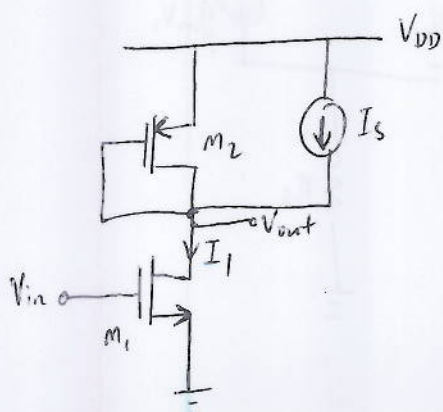 V_DD
M_2
I_S
V_out
I_1
V_in
M_1